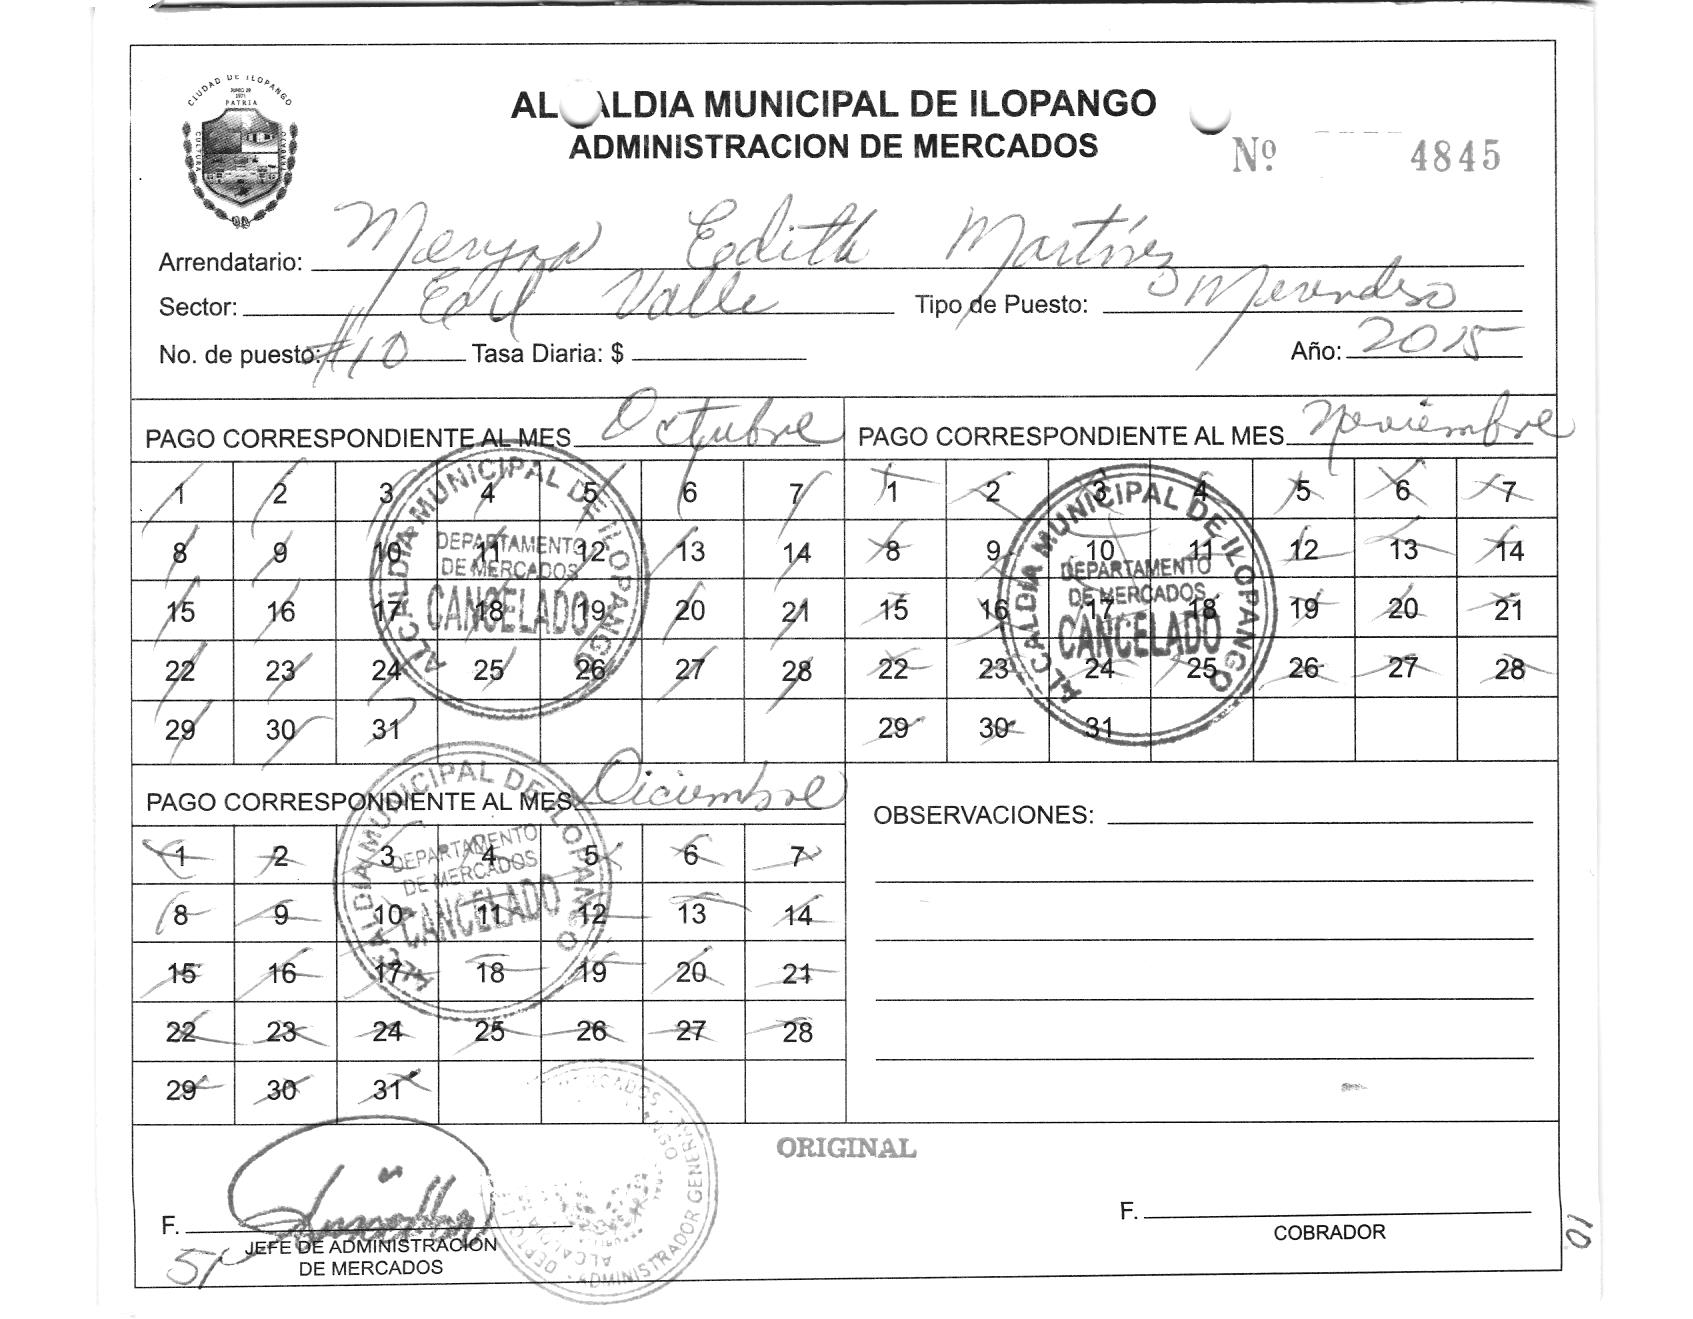 CIUDAD DE ILOPANGO
JUNIO 29
1971
PATRIA
CULTURA
AL ALDIA MUNICIPAL DE ILOPANGO
ADMINISTRACION DE MERCADOS
Nº 4845
Arrendatario: Edith Martínez
Sector: Edil Valle Tipo de Puesto:
No. de puesto: #10 Tasa Diaria: $ Año: 2015
PAGO CORRESPONDIENTE AL MES Octubre
1 2 3 4 5 6 7
8 9 10 11 12 13 14
15 16 17 18 19 20 21
22 23 24 25 26 27 28
29 30 31
ALCALDIA MUNICIPAL DE ILOPANGO
DEPARTAMENTO
DE MERCADOS
CANCELADO
PAGO CORRESPONDIENTE AL MES Noviembre
1 2 3 4 5 6 7
8 9 10 11 12 13 14
15 16 17 18 19 20 21
22 23 24 25 26 27 28
29 30 31
ALCALDIA MUNICIPAL DE ILOPANGO
DEPARTAMENTO
DE MERCADOS
CANCELADO
PAGO CORRESPONDIENTE AL MES Diciembre
1 2 3 4 5 6 7
8 9 10 11 12 13 14
15 16 17 18 19 20 21
22 23 24 25 26 27 28
29 30 31
ALCALDIA MUNICIPAL DE ILOPANGO
DEPARTAMENTO
DE MERCADOS
CANCELADO
OBSERVACIONES:
ORIGINAL
F.
JEFE DE ADMINISTRACION
DE MERCADOS
ADMINISTRADOR GENERAL
F.
COBRADOR
10